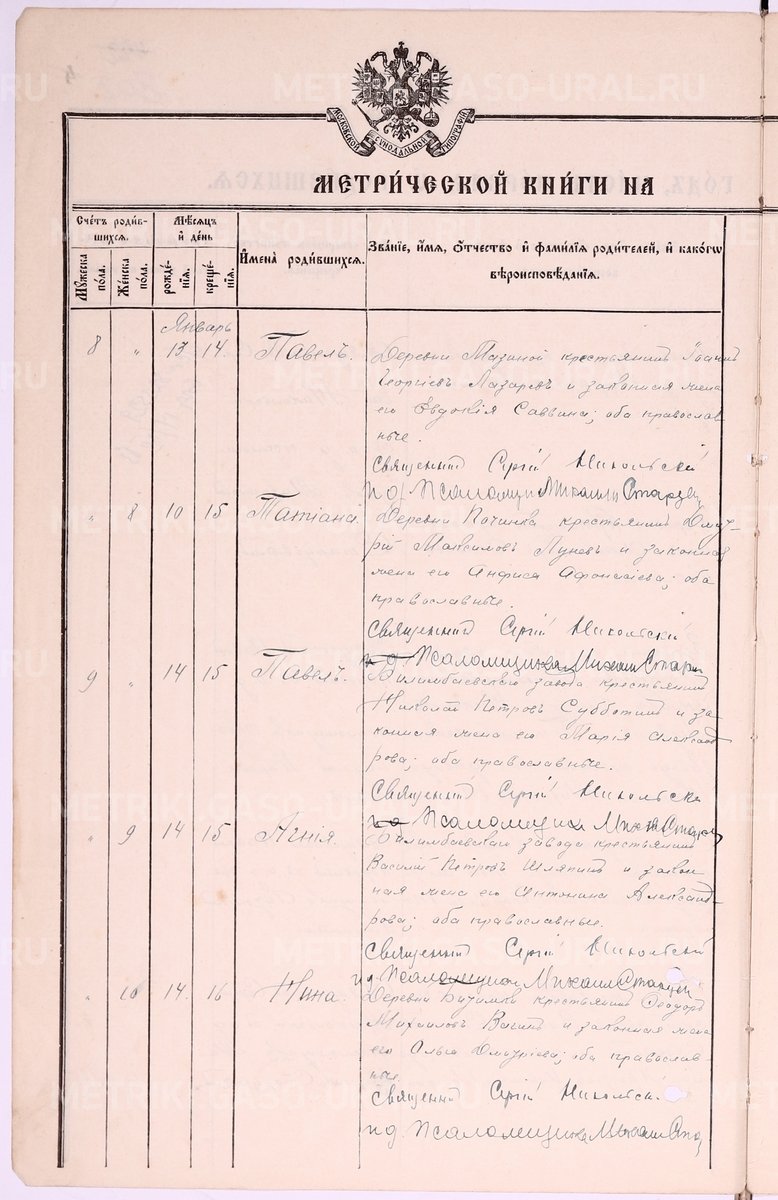 METRIKI.GASO-URAL.RU
МОСКОВСКОЙ СѴНОДАЛЬНОЙ ТИПОГРАФІИ
МЕТРИ́ЧЕСКОЙ КНИ́ГИ НА
Сче́тъ роди́в-
шихся.
Мѣ́сяцъ
и҆ де́нь
И҆мена̀ роди́вшихся.
Зва́нїе, и҆́мя, ѻ҆́тчество и҆ фами́лїя роди́телей, и҆ како́гѡ
вѣроисповѣ́данїя.
Мꙋ́жеска
по́ла.
Же́нска
по́ла.
рожде́-
нїя.
креще́-
нїя.
Январь
8 " 13 14 Павелъ. Деревни Мазиной крестьянинъ Іоаннъ
Георгіевъ Лазаревъ и законная жена
его Евдокія Саввина; оба православ
ные.
Священникъ Сергій Никольскій
и д. Псаломщика Михаилъ Старцев
" 8 10 15 Татіана. Деревни Починка крестьянинъ Дмит-
рій Максимовъ Луневъ и законная
жена его Анфиса Афонасіева; оба
православные.
Священникъ Сергій Никольскій
и д. Псаломщика Михаилъ
9 " 14 15 Павелъ. Билимбаевскаго завода крестьянинъ
Николай Петровъ Субботинъ и за-
конная жена его Марія Александ
рова; оба православные.
Священникъ Сергій Никольскій
и д. Псаломщика
" 9 14 15 Агнія. Билимбаевскаго завода крестьянинъ
Василій Петровъ Шляпинъ и закон
ная жена его Антонина Александ-
рова; оба православные.
Священникъ Сергій Никольскій
и д. Псаломщика Михаилъ Старцев
" 10 14 16 Нина. Деревни крестьянинъ Ѳеодоръ
Михаиловъ и законная жена
его Дмитріева; оба православ-
ные.
Священникъ Сергій Никольскій
и д. Псаломщика Михаилъ